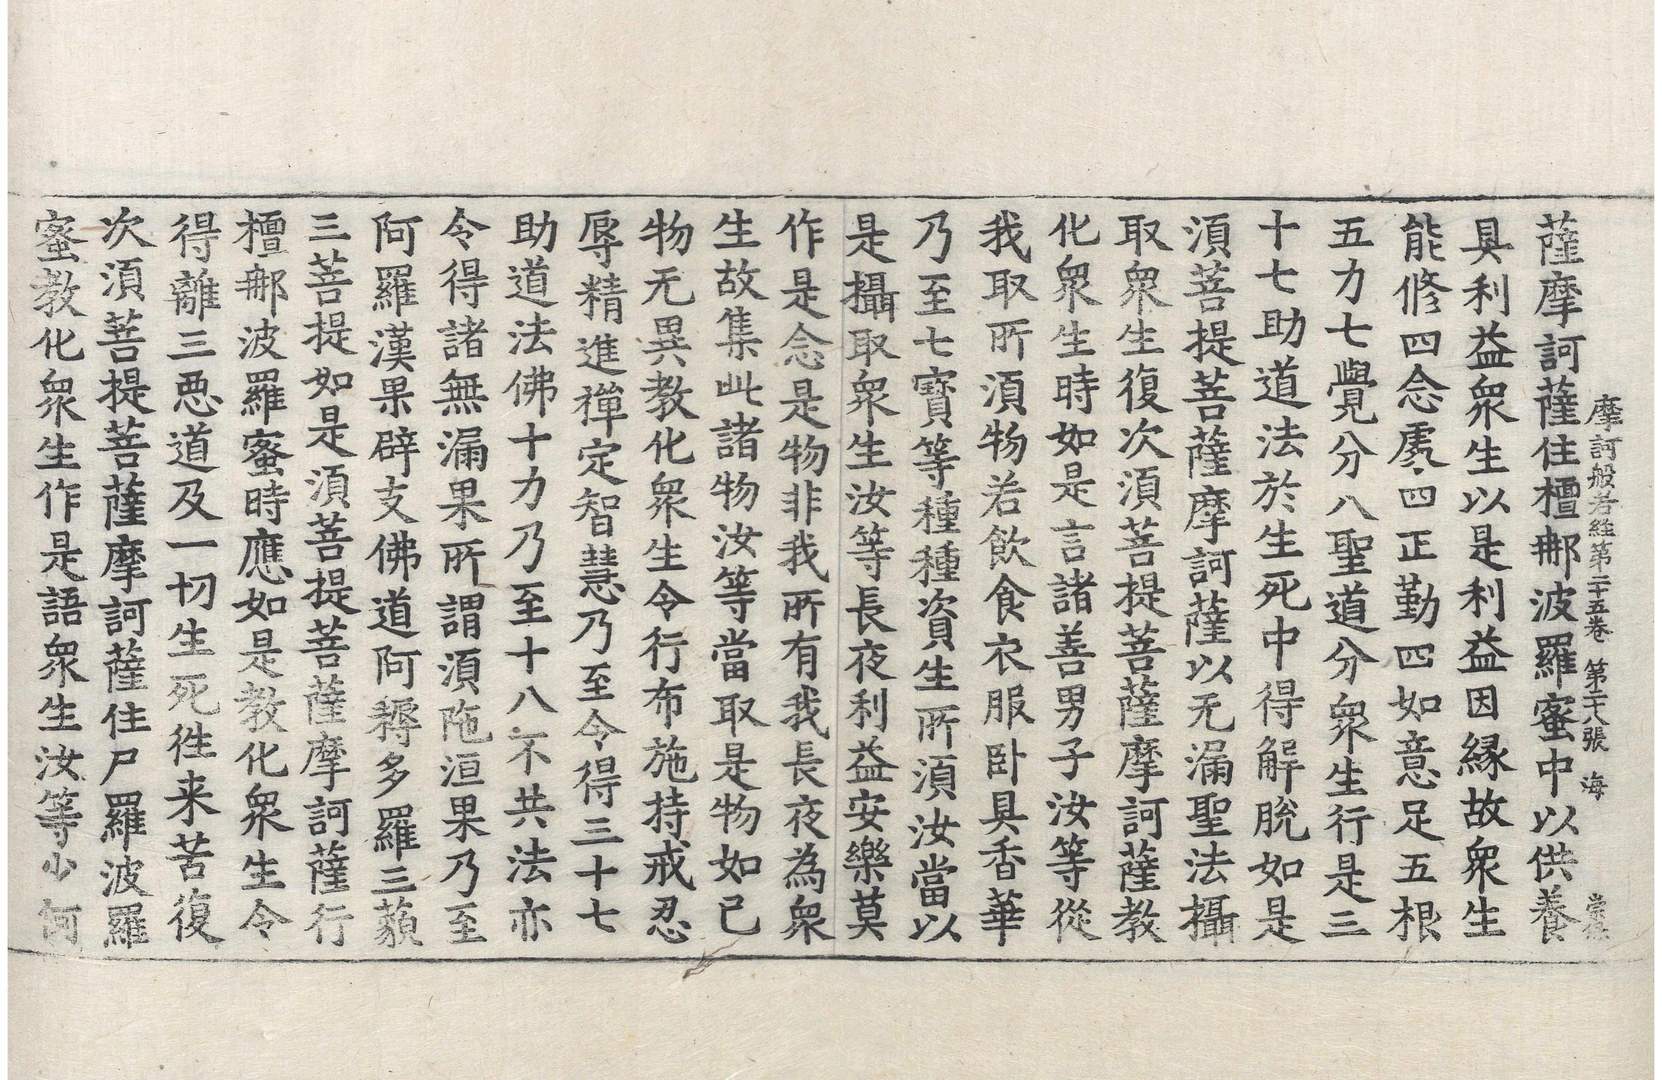 摩訶般若経第二十五巻　第二十八張　海
薩摩訶薩住檀那波羅蜜中以供養
具利益衆生以是利益因縁故衆生
能修四念處四正勤四如意足五根
五力七覺分八聖道分衆生行是三
十七助道法於生死中得解脫如是
湏菩提菩薩摩訶薩以无漏聖法攝
取衆生復次湏菩提菩薩摩訶薩教
化衆生時如是言諸善男子汝等從
我取所湏物若飲食衣服卧具香華
乃至七寶等種種資生所湏汝當以
是攝取衆生汝等長夜利益安樂莫
作是念是物非我所有我長夜為衆
生故集此諸物汝等當取是物如已
物无異教化衆生令行布施持戒忍
辱精進禪定智慧乃至令得三十七
助道法佛十力乃至十八不共法亦
令得諸無漏果所謂湏陁洹果乃至
阿羅漢果辟支佛道阿耨多羅三藐
三菩提如是湏菩提菩薩摩訶薩行
檀那波羅蜜時應如是教化衆生令
得離三惡道及一切生死徃来苦復
次湏菩提菩薩摩訶薩住尸羅波羅
蜜教化衆生作是語衆生汝等少何